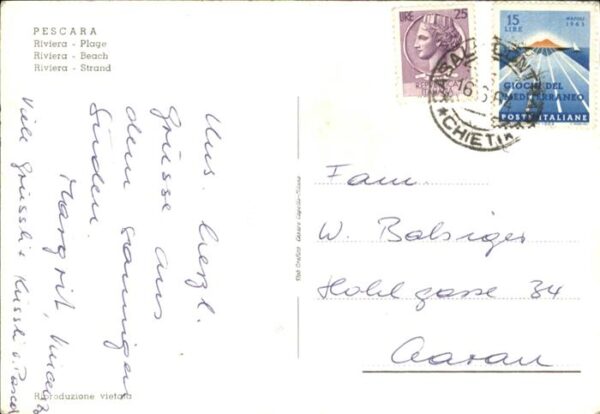 PESCARA
Riviera - Plage
Riviera - Beach
Riviera - Strand
Uns. herzl.
Grüsse aus
dem sonnigen
Süden.
Margrit,
Viele Grüssli + Küssli v. Pascal
Riproduzione vietata
LIRE 25
15 LIRE
NAPOLI 1963
GIOCHI DEL MEDITERRANEO
POSTE ITALIANE
CHIETI
Fam.
W. Bolsiger
Hohlgasse 34
Aarau